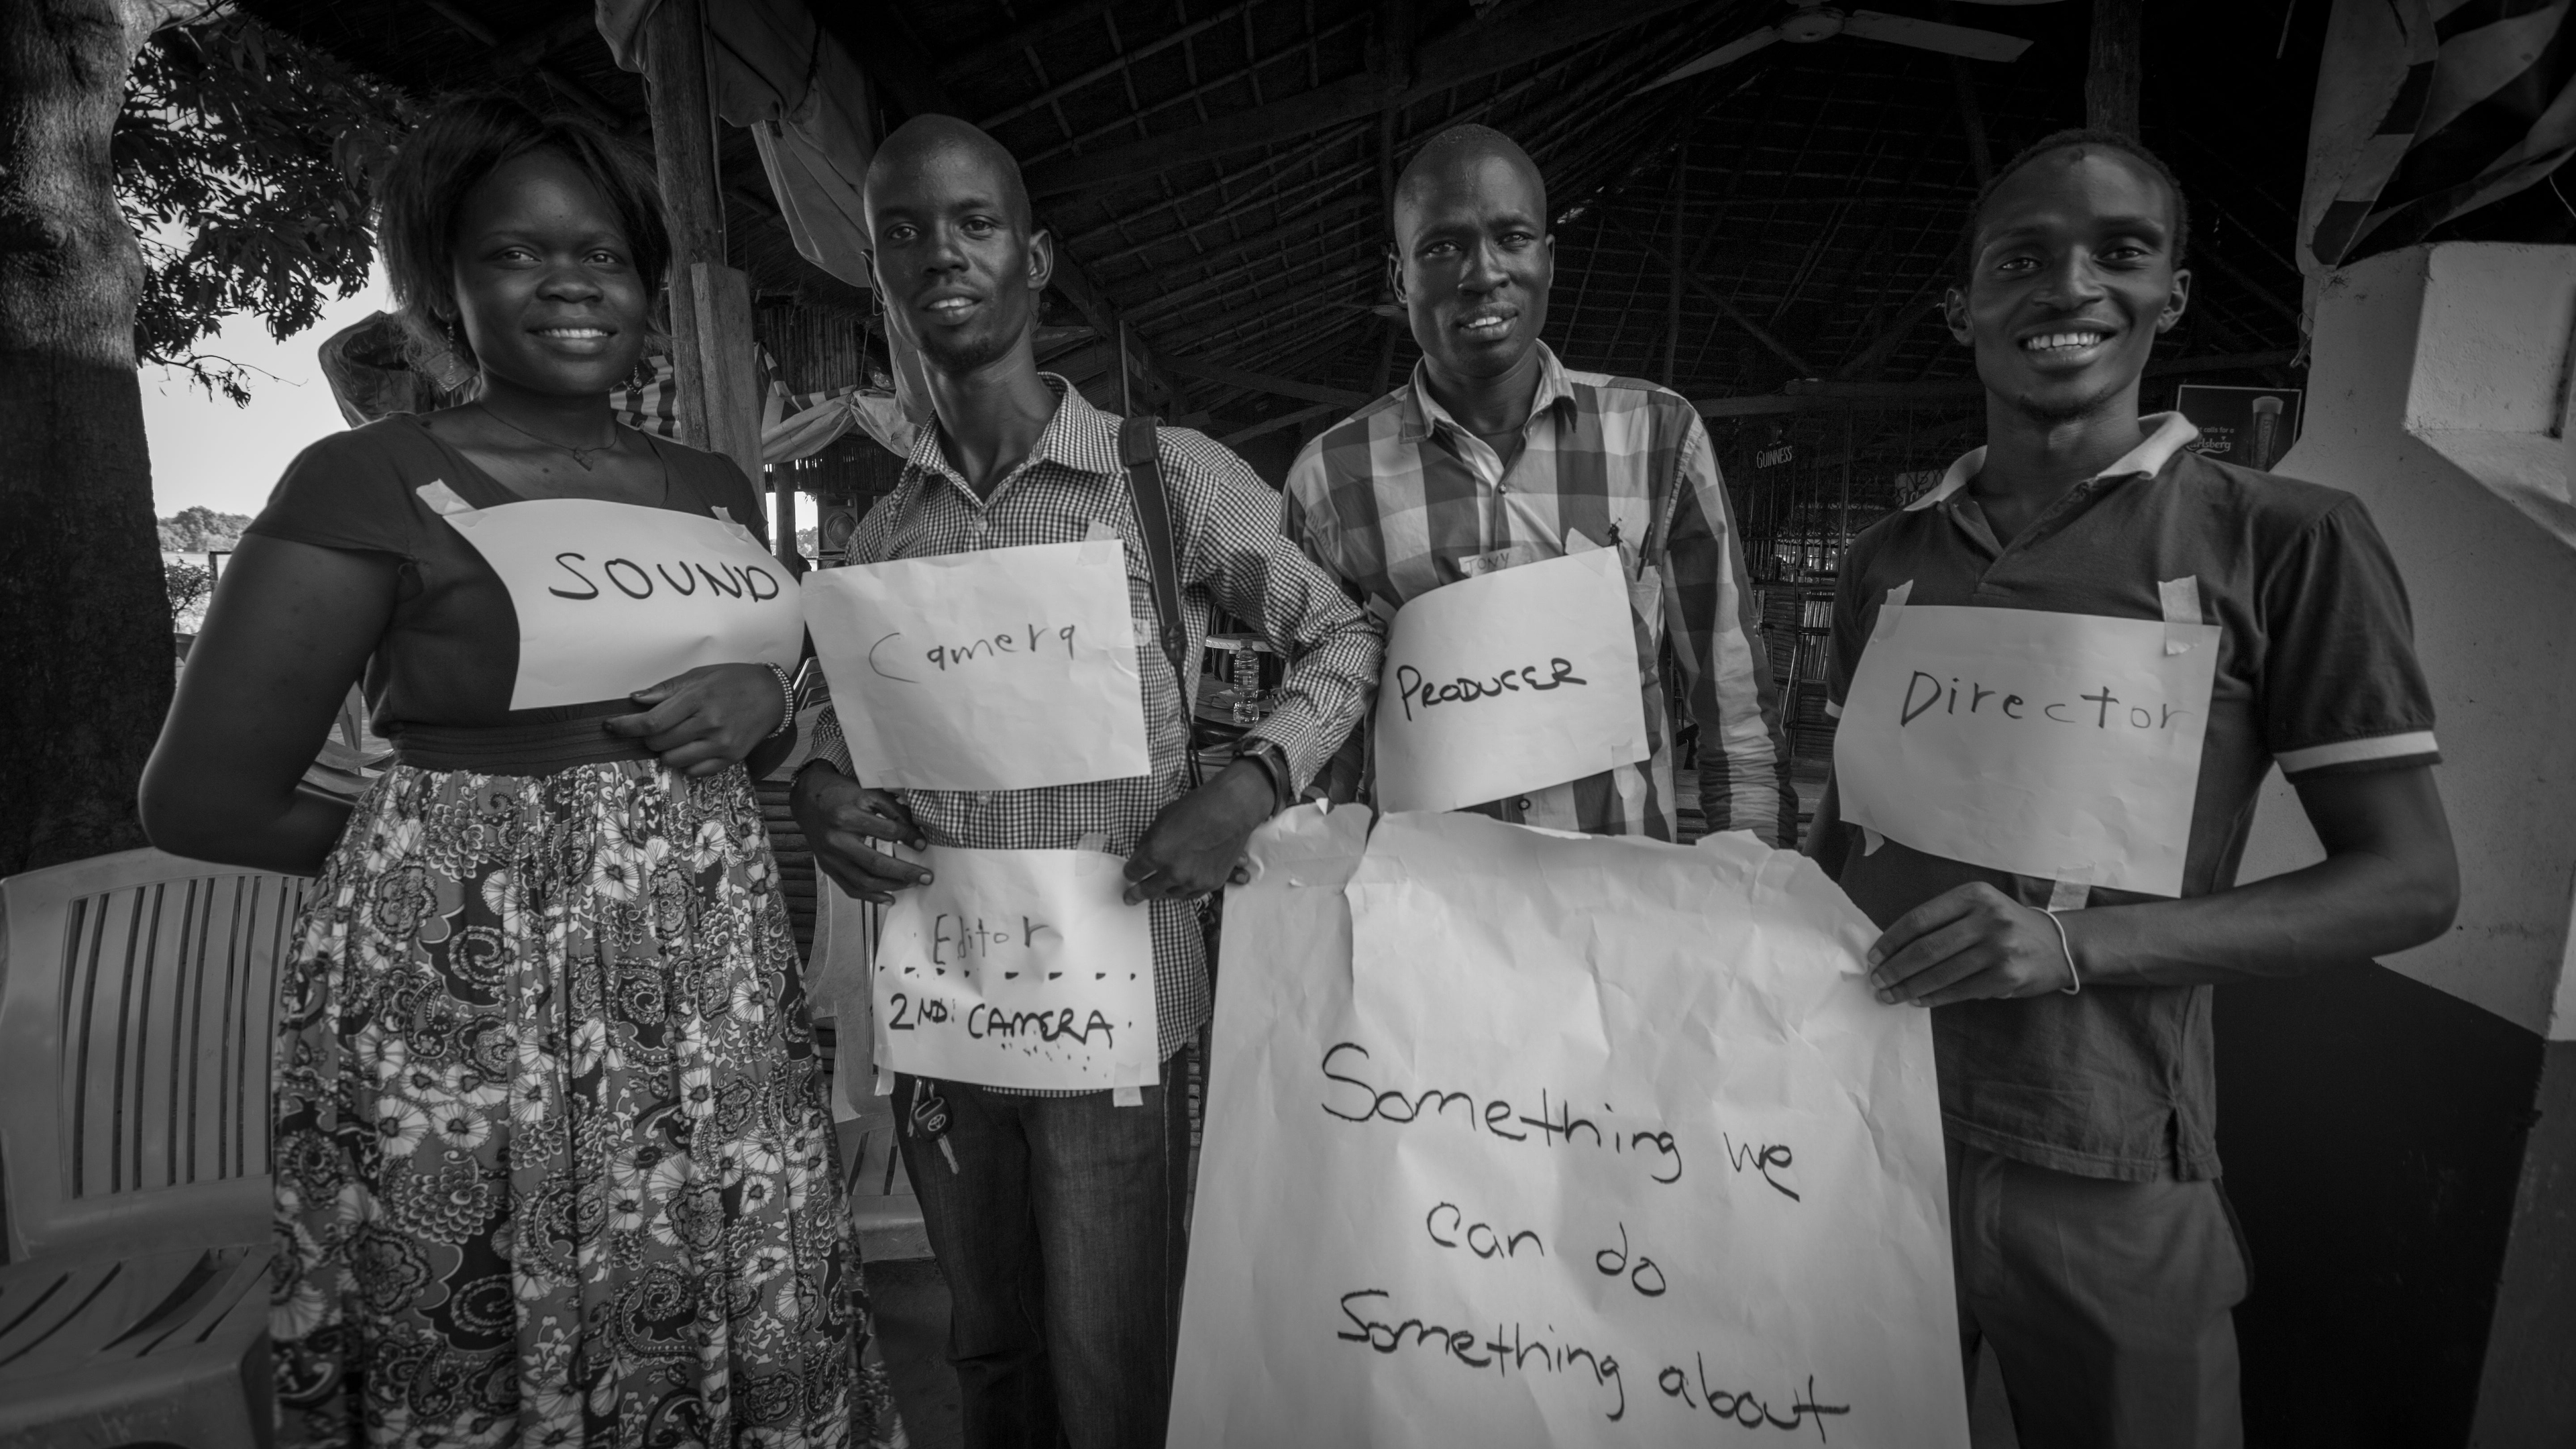 SOUND
Camera
Editor
2ND: CAMERA
TONY
PRODUCER
Director
Something we
can do
Something about
GUINNESS